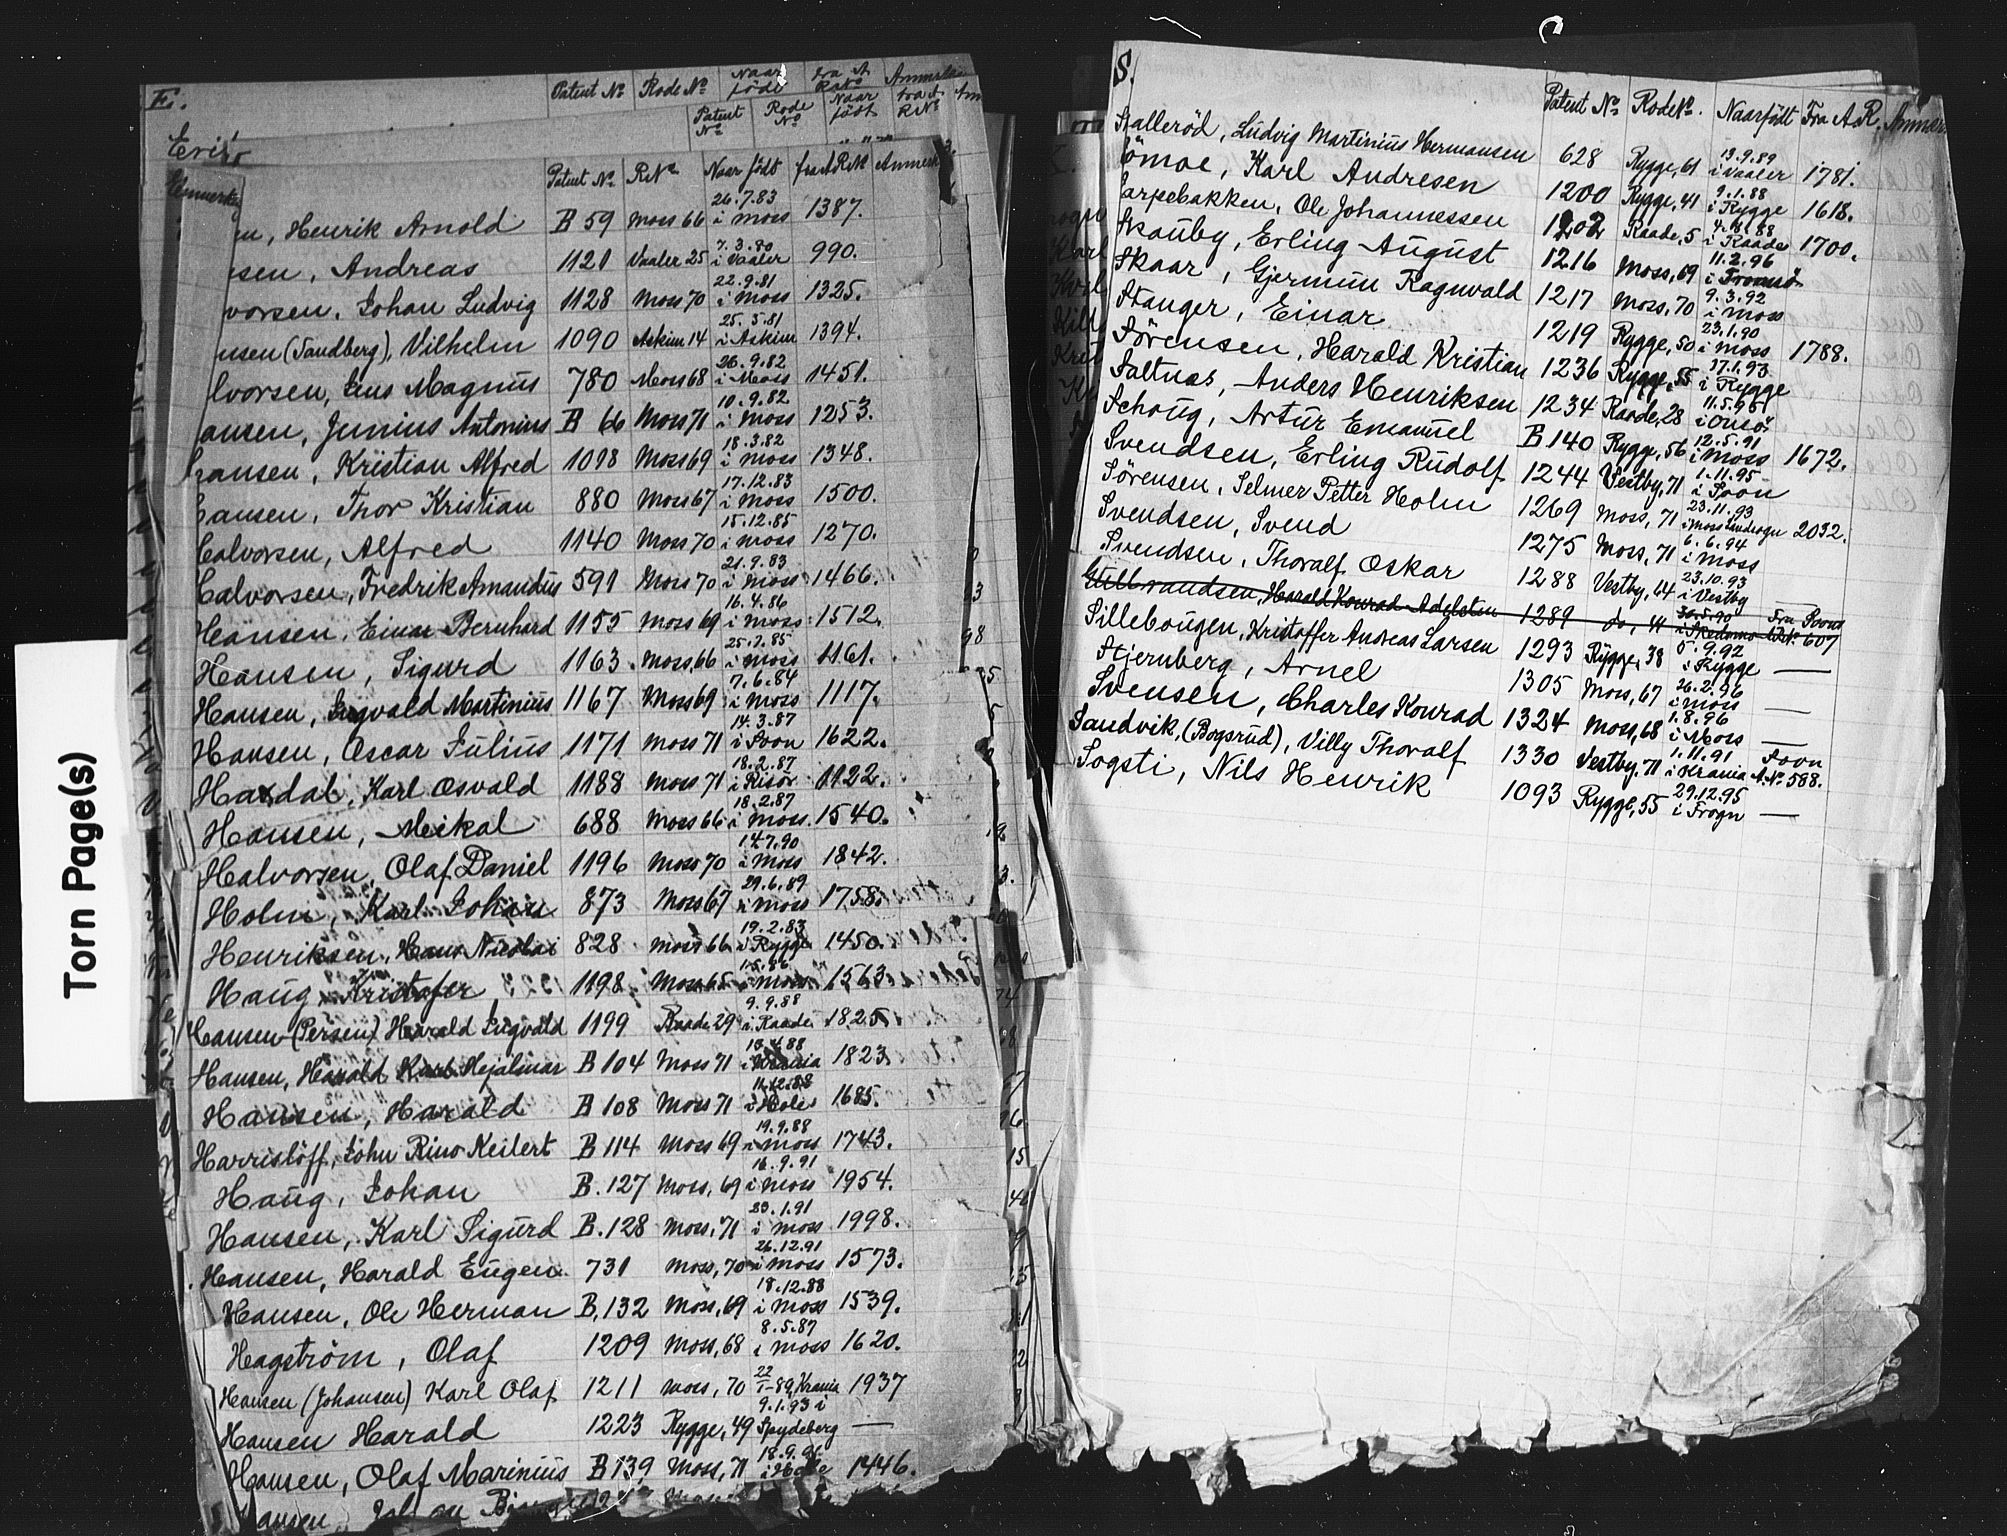 Torn Page(s)
E.
Patent № Rode № Naar föde fra A R№ Anmerkn
Patent № Rode № Naar födt fra A R№
Patent №. R№. Naar födt fra A R№ Anmerk
Henrik Arnold B 59 Moss 66 26.7.83 i Moss 1387.
sen, Andreas 1121 Vaaler 25 7.3.80 i Vaaler 990.
vorsen, Johan Ludvig 1128 Moss 70 22.9.81 i Moss 1325.
nsen (Sandberg), Vilhelm 1090 Askim 14 25.5.81 i Askim 1394.
lvorsen, Jens Magnus 780 Moss 68 26.9.82 i Moss 1451.
ansen, Junius Antonius B 66 Moss 71 10.9.82 i Moss 1253.
hansen, Kristian Alfred 1098 Moss 69 18.3.82 i Moss 1348.
Hansen, Thor Kristian 880 Moss 67 17.12.83 i Moss 1500.
Halvorsen, Alfred 1140 Moss 70 15.12.85 i Moss 1270.
Halvorsen, Fredrik Amandus 591 Moss 70 21.9.83 i Moss 1466.
Hansen, Einar Bernhard 1155 Moss 69 16.4.86 i Moss 1512.
Hansen, Sigurd 1163 Moss, 66 25.7.85 i Moss 1161.
Hansen, Ingvald Martinius 1167 Moss 69 7.6.84 i Moss 1117.
Hansen, Oscar Julius 1171 Moss 71 14.3.87 i Soon 1622.
Haxdal, Karl Osvald 1188 Moss 71 18.2.87 i Risör 1122.
Hansen, Mikal 688 Moss 66 18.2.87 i Moss. 1540.
Halvorsen, Olaf Daniel 1196 Moss 70 14.7.90 i Moss 1842.
Holm, Karl Johan 873 Moss 67 29.6.89 i Moss 1758.
Henriksen, Hans Nicolai 828 Moss 66 19.2.83 i Rygge 1450.
Haug, Kristofer 1198 Moss 65 1.5.86 i Moss 1563.
Hansen (Persen) Harald Ingvald 1199 Raade 29 9.9.88 i Raade 1825
Hansen, Harald Karl Hejalmar B 104 Moss 71 13.4.88 i Krania 1823.
Hansen, Harald B 108 Moss 71 11.12.88 i Hole 1685.
Harrislöff, John Rino Keilert B 114 Moss 69 19.9.88 i Moss 1743.
Haug, Johan B. 127 Moss, 69 16.9.91 i Moss 1954.
Hansen, Karl Sigurd B. 128 Moss, 71 23.1.91 i Moss 1998.
Hansen, Harald Eugen 731 Moss, 70 26.12.91 i Moss 1573.
Hansen, Ole Herman B, 132 Moss, 69 18.12.88 i Moss 1539.
Hagström, Olaf 1209 Moss, 68 8.5.87 i Moss 1620.
Hansen (Johansen) Karl Olaf 1211 Moss, 70 22/1-89, Krania 1937
Hansen Harald 1223 Rygge, 49 9.1.93 i Spydeberg —
Hansen, Olaf Marinius B 139 Moss, 71 18.9.96 1446.
Hansen
S.
Patent № Rode №. Naar födt Fra A.R. Anmær
Stalleröd, Ludvig Martinius Hermansen 628 Rygge, 61 13.9.89 i Vaaler 1781.
Sömoe, Karl Andresen 1200 Rygge, 41 9.1.88 i Rygge 1618.
Sarpebakken, Ole Johannessen 1202 Raade, 5 i Raade 1700.
Skauby, Erling August 1216 Moss, 69 11.2.96 i Tromsö
Skaar, Gjermun Ragnvald 1217 Moss, 70 9.3.92 i Moss
Stanger, Einar 1219 Rygge, 50 23.1.90 i Moss 1788.
Sörensen, Harald Kristian 1236 Rygge, 55 17.1.93 i Rygge
Saltnes, Anders Henriksen 1234 Raade, 28 11.5.96 i Onsö
Schoug, Artur Emanuel B 140 Rygge, 56 12.5.91 i Moss 1672.
Svendsen, Erling Rudolf 1244 Vestby, 71 1.11.95 i Soon
Sörensen, Selmer Petter Holm 1269 Moss, 71 23.11.93 i Moss landsogn 2032.
Svendsen, Svend 1275 Moss, 71 6.6.94 i Moss
Svendsen, Thoralf Oskar 1288 Vestby, 64 23.10.93 i Vestby
Gulbrandsen, Harald Konrad Adelsten 1289 do, 44 30.5.90 i Skedsmo Fra Soon A.№ 607
Sillebougen, Kristoffer Andreas Larsen 1293 Rygge, 38 5.9.92 i Rygge —
Stjernberg, Arnel 1305 Moss, 67 26.2.96 i Moss —
Svensen, Charles Konrad 1324 Moss, 68 1.8.96 i Moss —
Sandvik, (Bogsrud), Villy Thoralf 1330 Vestby, 71 1.11.91 i Krania Soon A.№ 588.
Sogsti, Nils Henrik 1093 Rygge, 55 29.12.95 i Frogn —